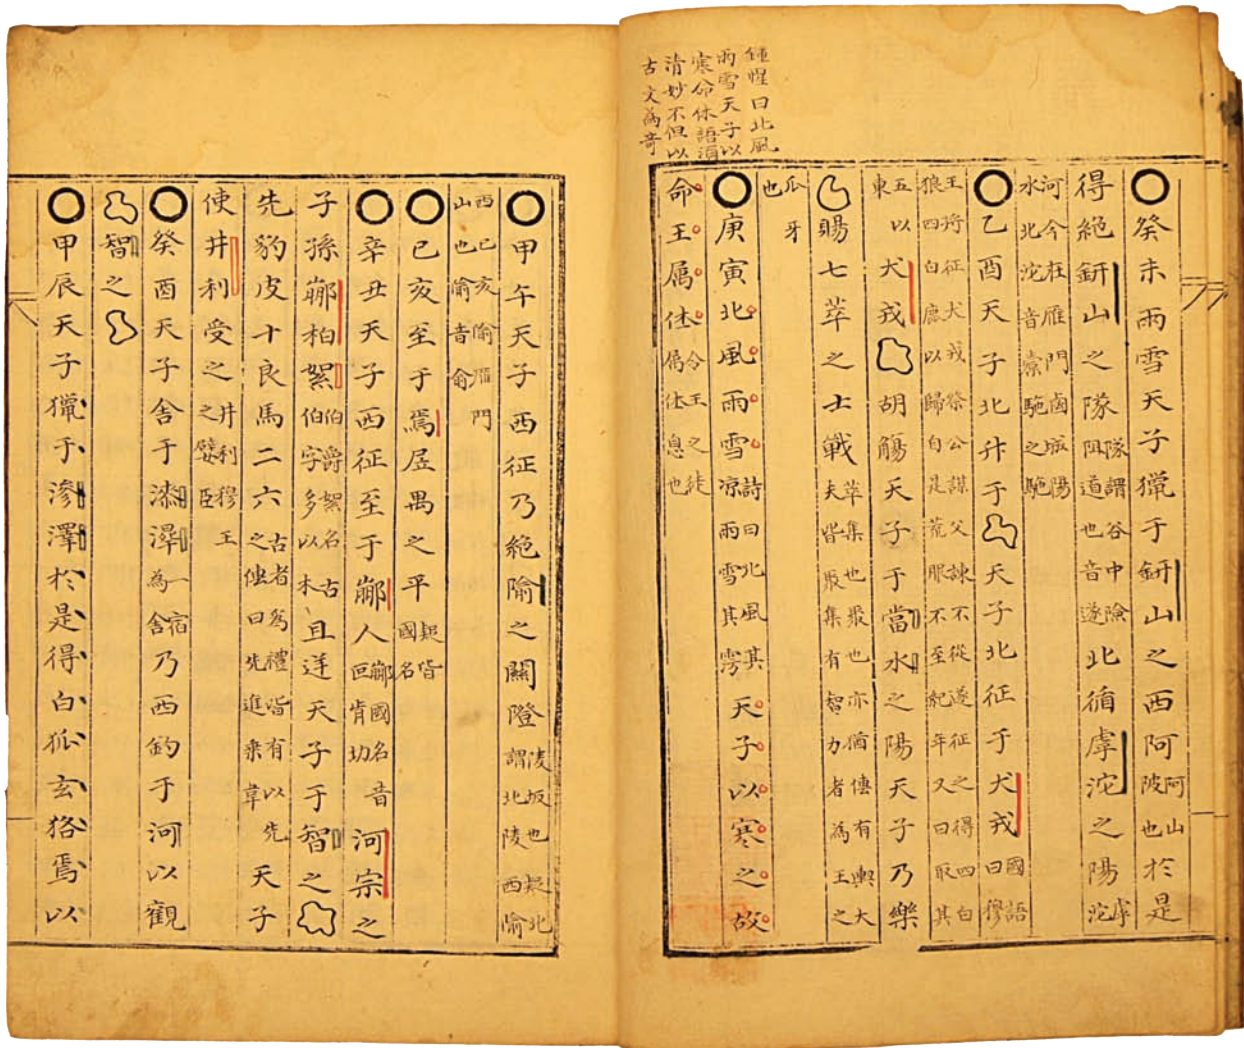 鍾惺曰北風
雨雪天子以
寒命休語須
清妙不但以
古文為奇
○癸未雨雪天子獵于鈃山之西阿阿山陂也於是
得絶鈃山之隊隊謂谷中險阻道也音遂北循虖沱之陽虖沱
河今在雁門鹵城陽水北沱音橐駞之駞
○乙酉天子北升于天子北征于犬戎國語曰穆
王將征犬戎祭公謀父諫不從遂征之得四白狼四白鹿以歸自是荒服不至紀年又曰取其
五王以東犬戎胡觴天子于當水之陽天子乃樂
賜七萃之士戰萃集也聚也亦猶傳有輿大夫皆聚集有智力者為王之
爪牙也
○庚寅北風雨雪詩曰北風其凉雨雪其雱天子以寒之故
命王属休令王之徒属休息也
○甲午天子西征乃絶隃之關隥隥阪也疑北謂北陵西隃
西隃雁門山也隃音俞
○己亥至于焉居禺知之平疑皆國名
○辛丑天子西征至于䣙人䣙國名音回肯切河宗之
子孫䣙柏絮伯爵絮名古伯字多以木且逆天子于智之
先豹皮十良馬二六古者為禮皆有以先之傳曰先進乘韋天子
使井利受之井利穆王之嬖臣
○癸酉天子舍于漆澤一宿為舍乃西釣于河以觀
智之
○甲辰天子獵于滲澤於是得白狐玄狢焉以